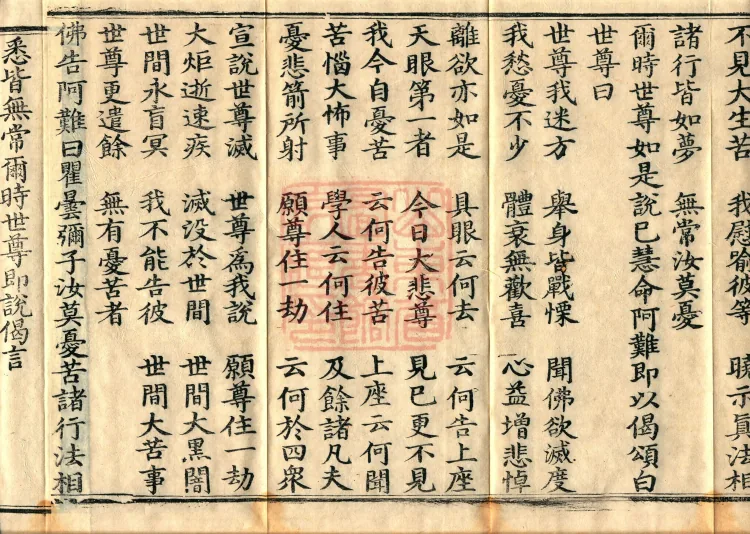 不見大生苦 我慰喻彼等 賜示眞法相
諸行皆如夢 無常汝莫憂
爾時世尊如是說已慧命阿難即以偈頌白
世尊曰
世尊我迷方 舉身皆戰慄 聞佛欲滅度
我愁憂不少 體衰無歡喜 心益增悲悼
離欲亦如是 具眼云何去 云何告上座
天眼第一者 今日大悲尊 見已更不見
我今自憂苦 云何告彼苦 上座云何聞
苦惱大怖事 學人云何住 及餘諸凡夫
憂悲箭所射 願尊住一劫 云何於四衆
宣說世尊滅 世尊為我說 願尊住一劫
大炬逝速疾 滅没於世間 世間大黑闇
世間永盲冥 我不能告彼 世間大苦事
世尊更遣餘 無有憂苦者
佛告阿難曰瞿曇彌子汝莫憂苦諸行法相
悉皆無常爾時世尊即說偈言